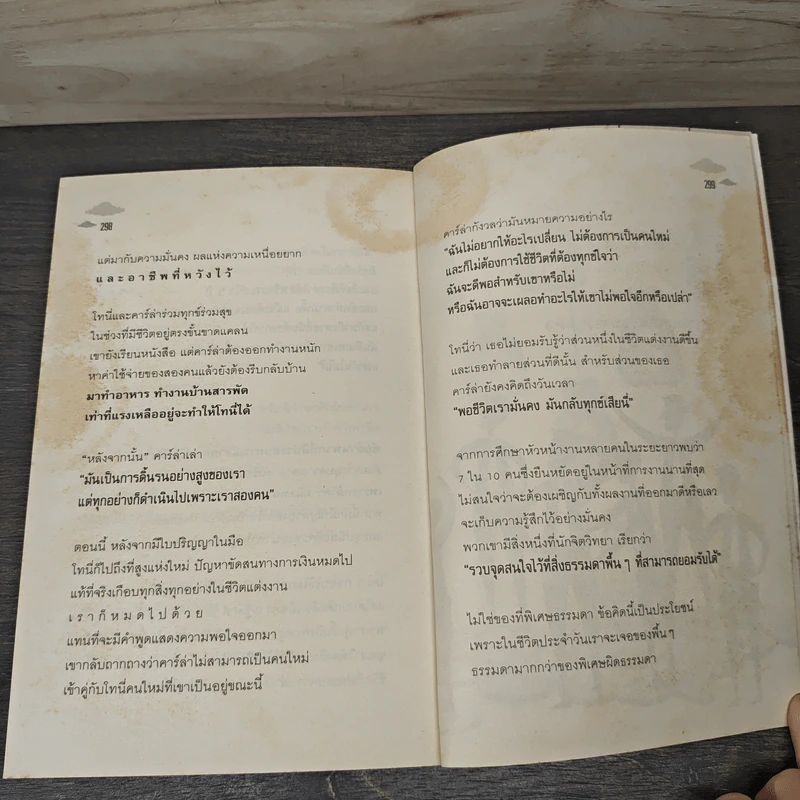 298
แต่มากับความมั่นคง ผลแห่งความเหนื่อยยาก
และอาชีพที่หวังไว้
โทนี่และคาร์ล่าร่วมทุกข์ร่วมสุข
ในช่วงที่มีชีวิตอยู่ตรงขั้นขาดแคลน
เขายังเรียนหนังสือ แต่คาร์ล่าต้องออกทำงานหนัก
หาค่าใช้จ่ายของสองคนแล้วยังต้องรีบกลับบ้าน
มาทำอาหาร ทำงานบ้านสารพัด
เท่าที่แรงเหลืออยู่จะทำให้โทนี่ได้
“หลังจากนั้น” คาร์ล่าเล่า
“มันเป็นการดิ้นรนอย่างสูงของเรา
แต่ทุกอย่างก็ดำเนินไปเพราะเราสองคน”
ตอนนี้ หลังจากมีใบปริญญาในมือ
โทนี่ก็ไปถึงที่สูงแห่งใหม่ ปัญหาขัดสนทางการเงินหมดไป
แต่ที่จริงเกือบทุกสิ่งทุกอย่างในชีวิตแต่งงาน
เราก็หมดไปด้วย
แทนที่จะมีคำพูดแสดงความพอใจออกมา
เขากลับถากถางว่าคาร์ล่าไม่สามารถเป็นคนใหม่
เข้าคู่กับโทนี่คนใหม่ที่เขาเป็นอยู่ขณะนี้
299
คาร์ล่ากังวลว่ามันหมายความอย่างไร
“ฉันไม่อยากให้อะไรเปลี่ยน ไม่ต้องการเป็นคนใหม่
และก็ไม่ต้องการใช้ชีวิตที่ต้องทุกข์ใจว่า
ฉันจะดีพอสำหรับเขาหรือไม่
หรือฉันอาจจะเผลอทำอะไรให้เขาไม่พอใจอีกหรือเปล่า”
โทนี่ว่า เธอไม่ยอมรับรู้ว่าส่วนหนึ่งในชีวิตแต่งงานดีขึ้น
และเธอทำลายส่วนที่ดีนั้น สำหรับส่วนของเธอ
คาร์ล่ายังคงคิดถึงวันเวลา
“พอชีวิตเรามั่นคง มันกลับทุกข์เสียนี่”
จากการศึกษาหัวหน้างานหลายคนในระยะยาวพบว่า
7 ใน 10 คนซึ่งยืนหยัดอยู่ในหน้าที่การงานนานที่สุด
ไม่สนใจว่าจะต้องเผชิญกับทั้งผลงานที่ออกมาดีหรือเลว
จะเก็บความรู้สึกไว้อย่างมั่นคง
พวกเขามีสิ่งหนึ่งที่นักจิตวิทยา เรียกว่า
“รวบจุดสนใจไว้ที่สิ่งธรรมดาพื้น ๆ ที่สามารถยอมรับได้”
ไม่ใช่ของที่พิเศษธรรมดา ข้อคิดนี้เป็นประโยชน์
เพราะในชีวิตประจำวันเราจะเจอของพื้น ๆ
ธรรมดามากกว่าของพิเศษผิดธรรมดา